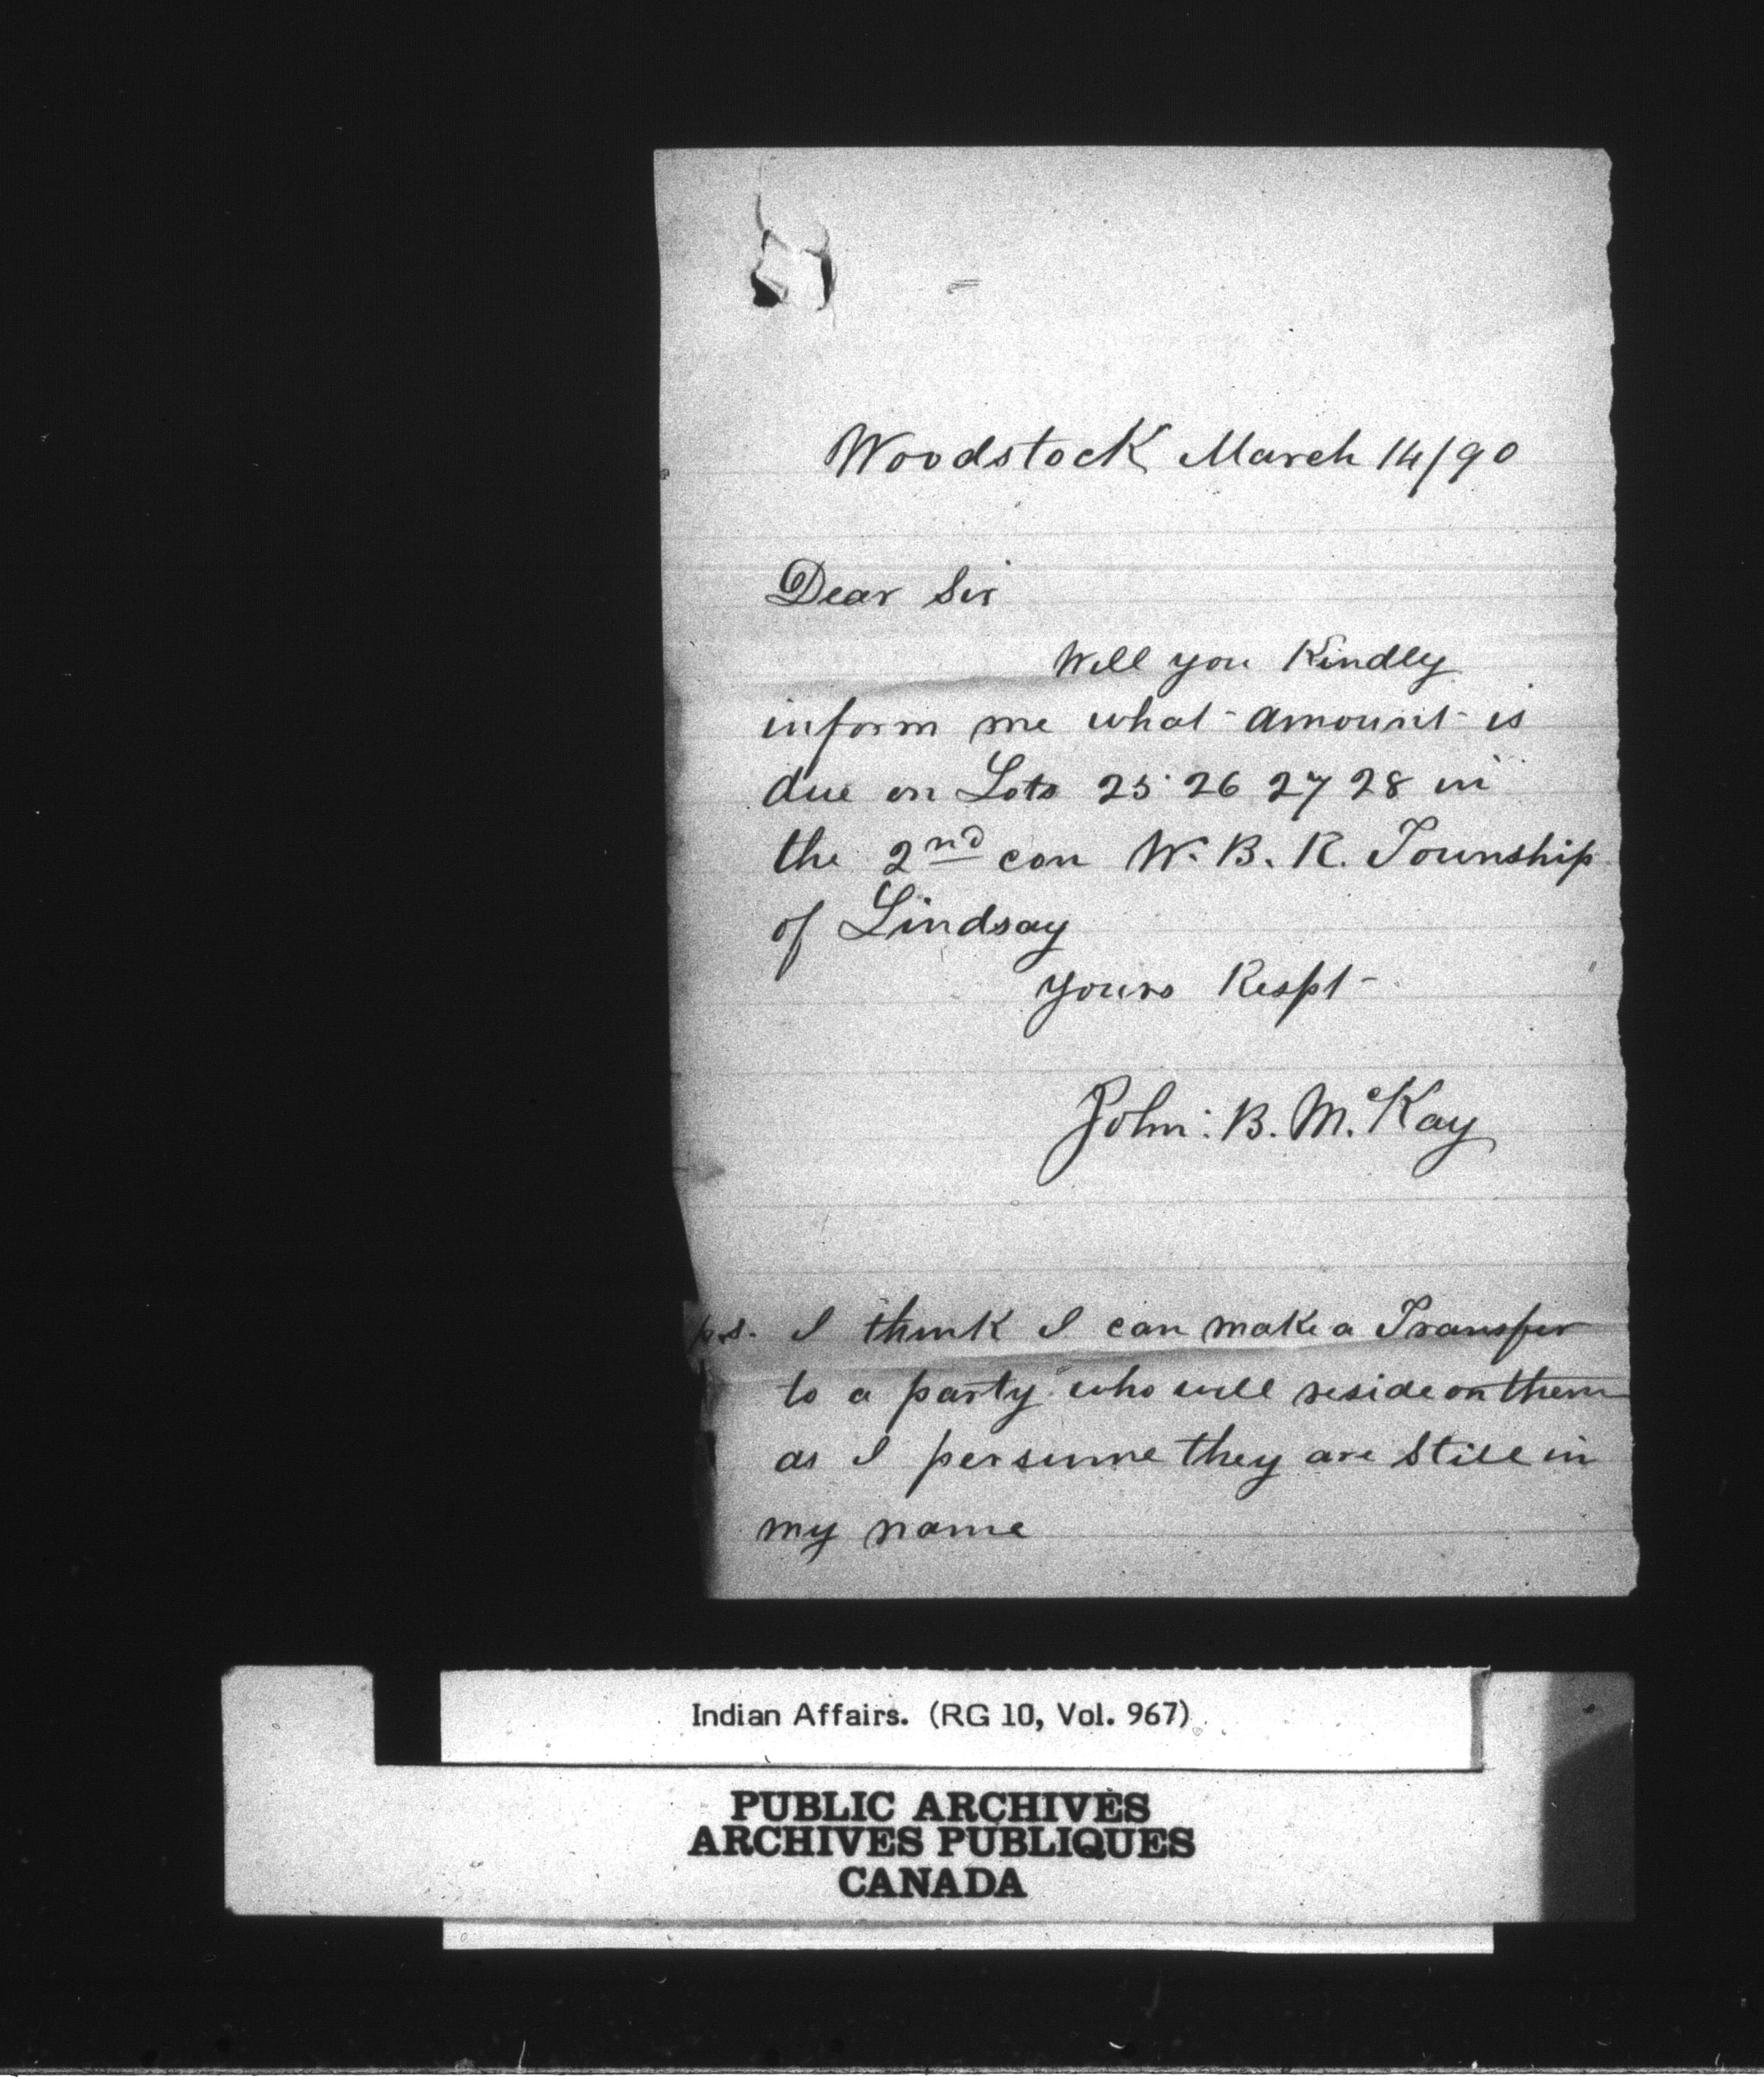 Woodstock March 14/90
Dear Sir
Will you Kindly
inform me what amount is
due on Lots 25 26 27 28 in
the 2nd con W. B. R. Township
of Lindsay
yours Respt
John. B. McKay
p.s. I think I can make a Transfer
to a party who will reside on them
as I persume they are Still in
my name
Indian Affairs. (RG 10, Vol. 967)
PUBLIC ARCHIVES
ARCHIVES PUBLIQUES
CANADA